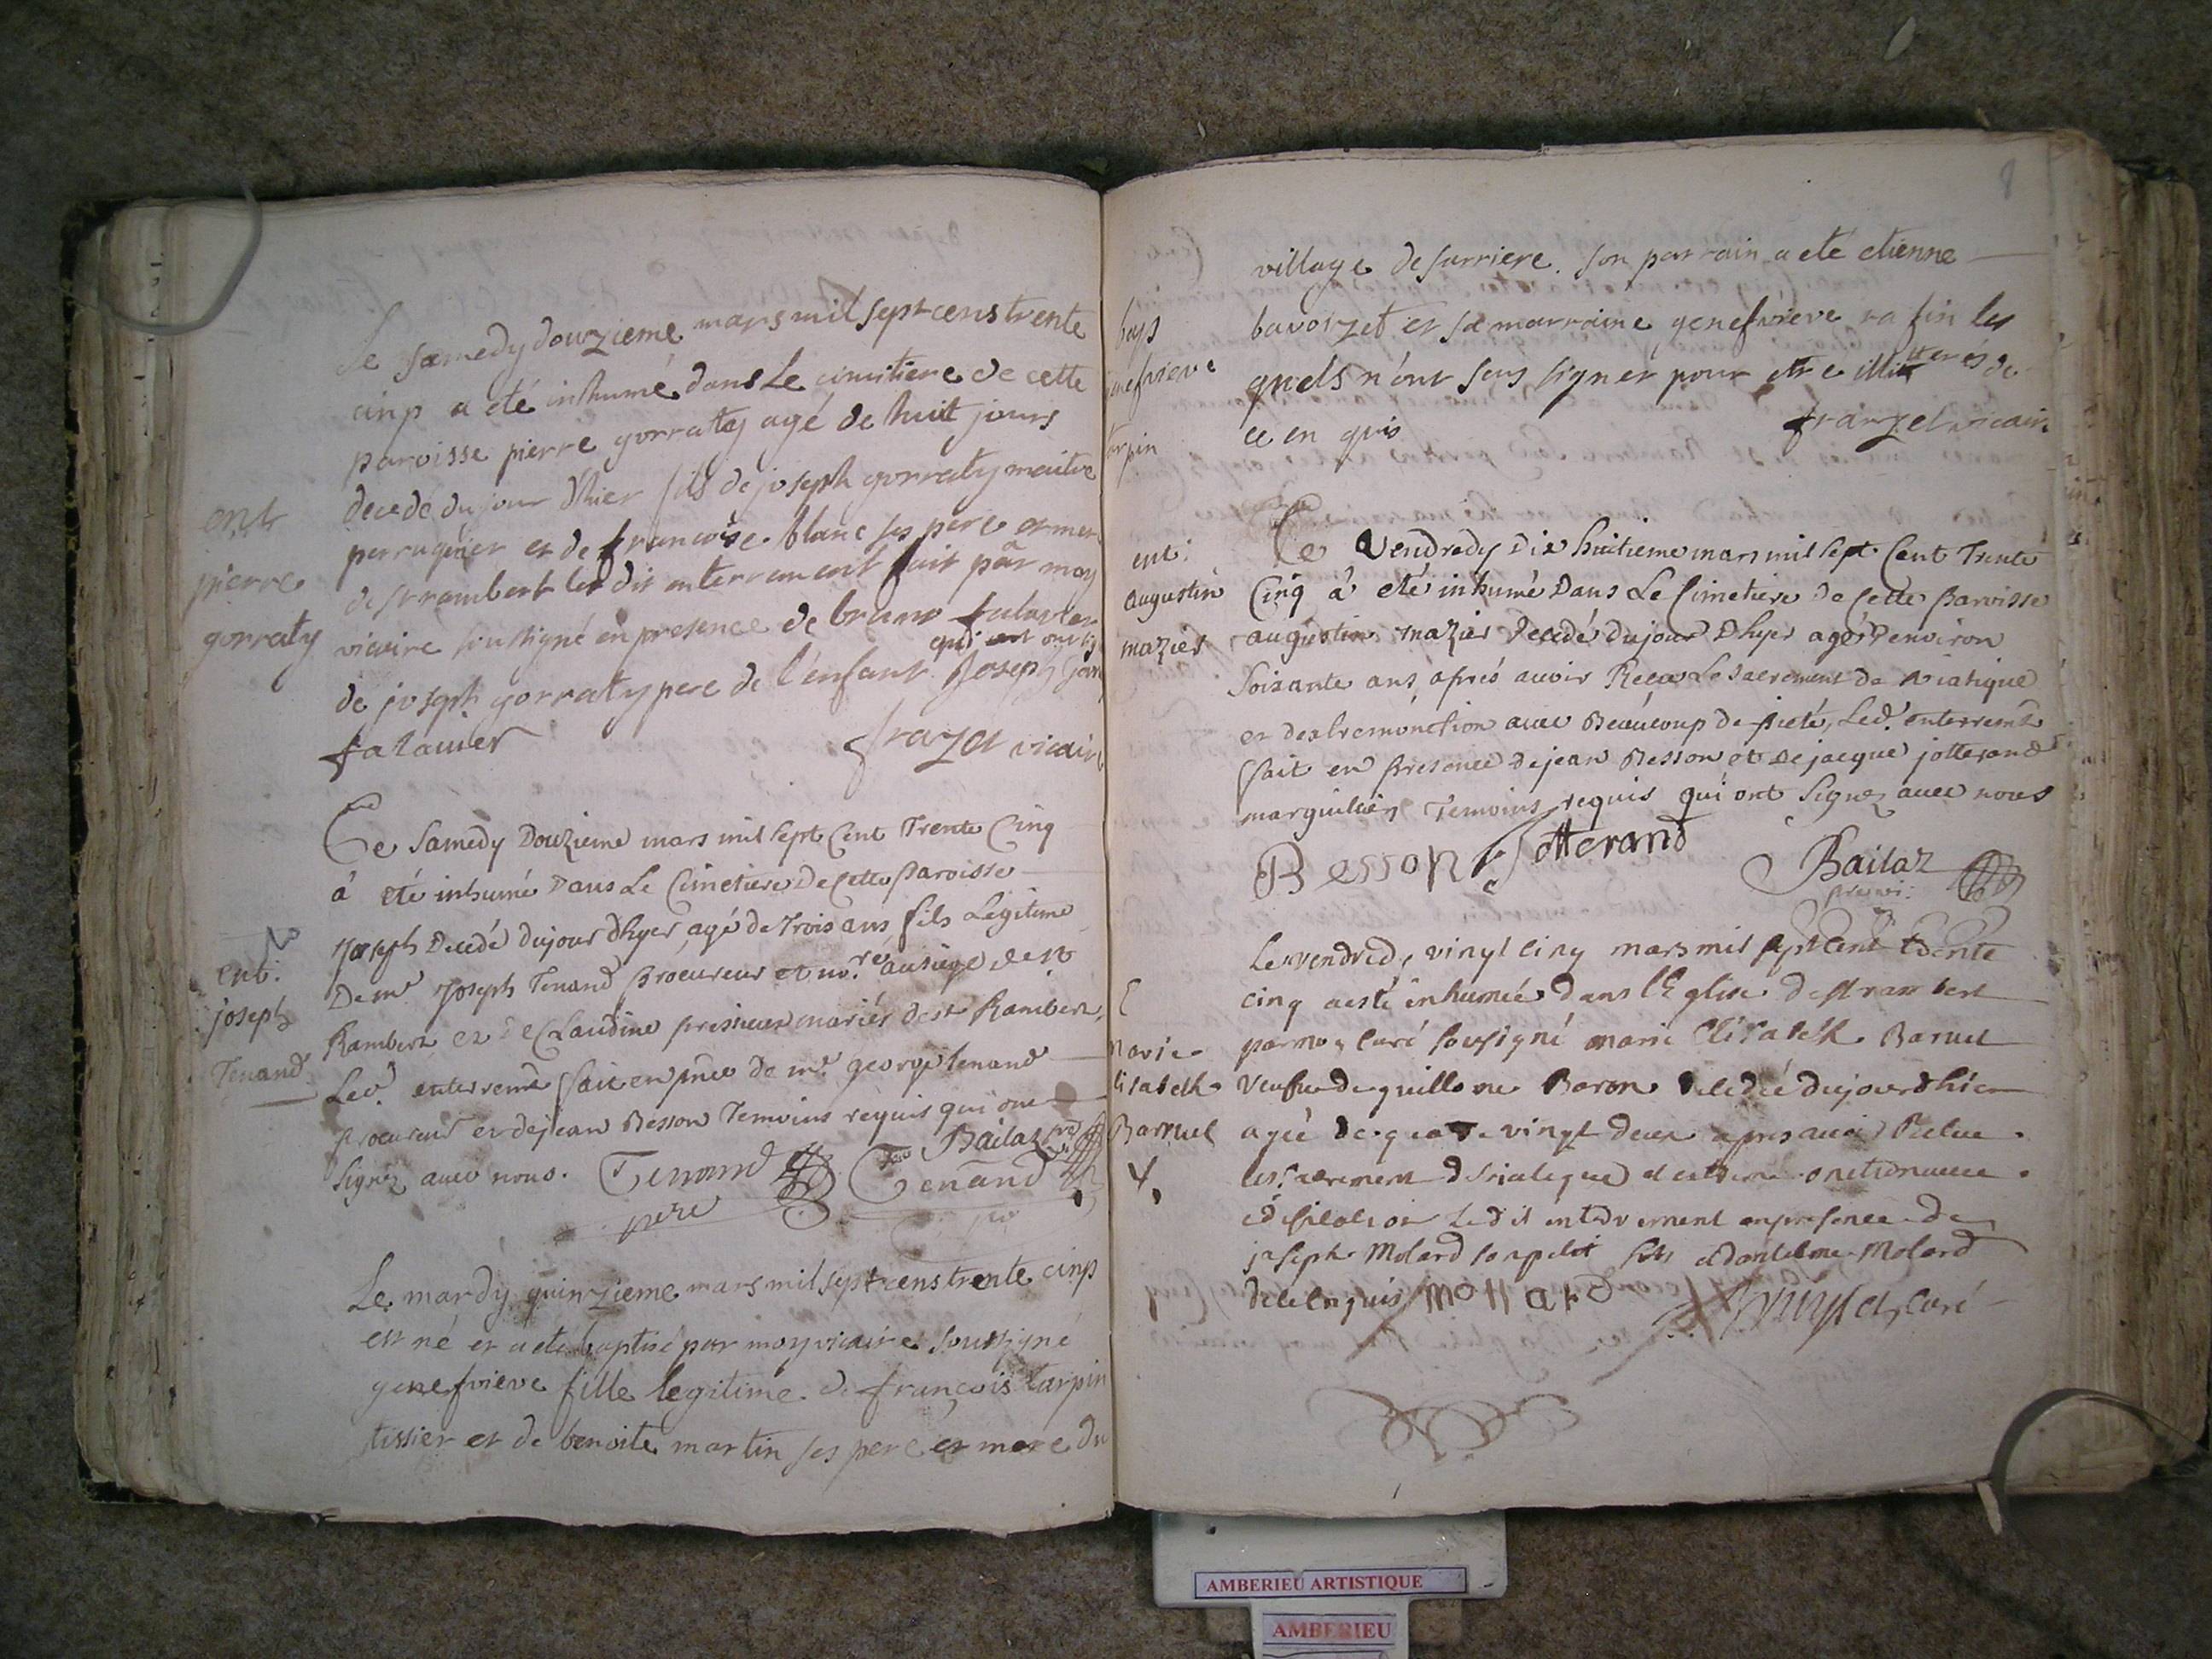 Le samedy douzieme mars mil sept cens trente
cinp a eté inhumé dans Le cimitiere de cette
paroisse pierre gorraty agé de huit jours
decedé du jour d'hier fils de joseph gorraty maitre
ent
perruquier et de francoise blanc ses pere et mer
pierre
de st rambert le dit enterrement fait par moy
gorraty
vicaire soussigné en presence de bruno falavier
qui ont
de joseph gorraty pere de l'enfant Joseph gorr
falavier
frazet vicaire
Ce Samedy Douzieme mars mil sept Cent Trente Cinq
à été inhumé Dans Le Cimetiere De Cette Paroisse
ent.
joseph
Tenand
Joseph Decedé dujour d'hyer, agé de Trois ans, fils Legitime
De mr Joseph Tenand Procureur et no.re au siege de st
Rambert et de Claudine mariés de st Rambert,
Led. enterremt fait en pnce de mr george Tenand
procureur et de jean Besson Temoins requis qui ont
Signez avec nous. Tenand Tenand Bailaz
pere
Le mardy quinzieme mars mil sept cens trente cinp
est né et a eté baptisé par moy vicaire soussigné
genefvieve fille legitime de françois tarpin
tissier et de benoite martin ses pere et mere du
8
village de sarriere. son parrain a eté etienne
bap
bavozet et sa marraine genefvieve rafin les
nefvieve
quels n'ont seus signer pour etre illitterés de
tarpin
ce en quis
frazet vicair
ent.
augustin
mazier
Ce Vendredy Dix huitieme mars mil sept Cent Trente
Cinq à eté inhumé Dans Le Cimetiere De Cette Paroisse
augustin mazier Decedé dujour D'hyer agé D'environ
Soixante ans, aprés avoir Reçu Le Sacrement De Viatique
et d'extremonction avec Beaucoup de pieté, Led. enterremt
fait en presence de jean Besson et de jacque jotterand
marguillier Temoins requis qui ont Signez avec nous
Besson Jotterand Bailaz
Le vendredy vingt cinq mars mil sept cent trente
cinq a esté inhumée dans l'Eglise de st rambert
Marie
par moy curé soussigné marie Elisabeth Barruel
lisabeth
Veufve de guillome Baron decedée du jour d'hier
Barruel
agée de quatre vingt deux apres avoir Recue
les sacrement de viatique et extreme onction avec
edification Ledit enterrement en presence de
joseph Molard son petit fils et d'antelme Molard
de ce enquis mollard curé
AMBERIEU ARTISTIQUE
AMBERIEU